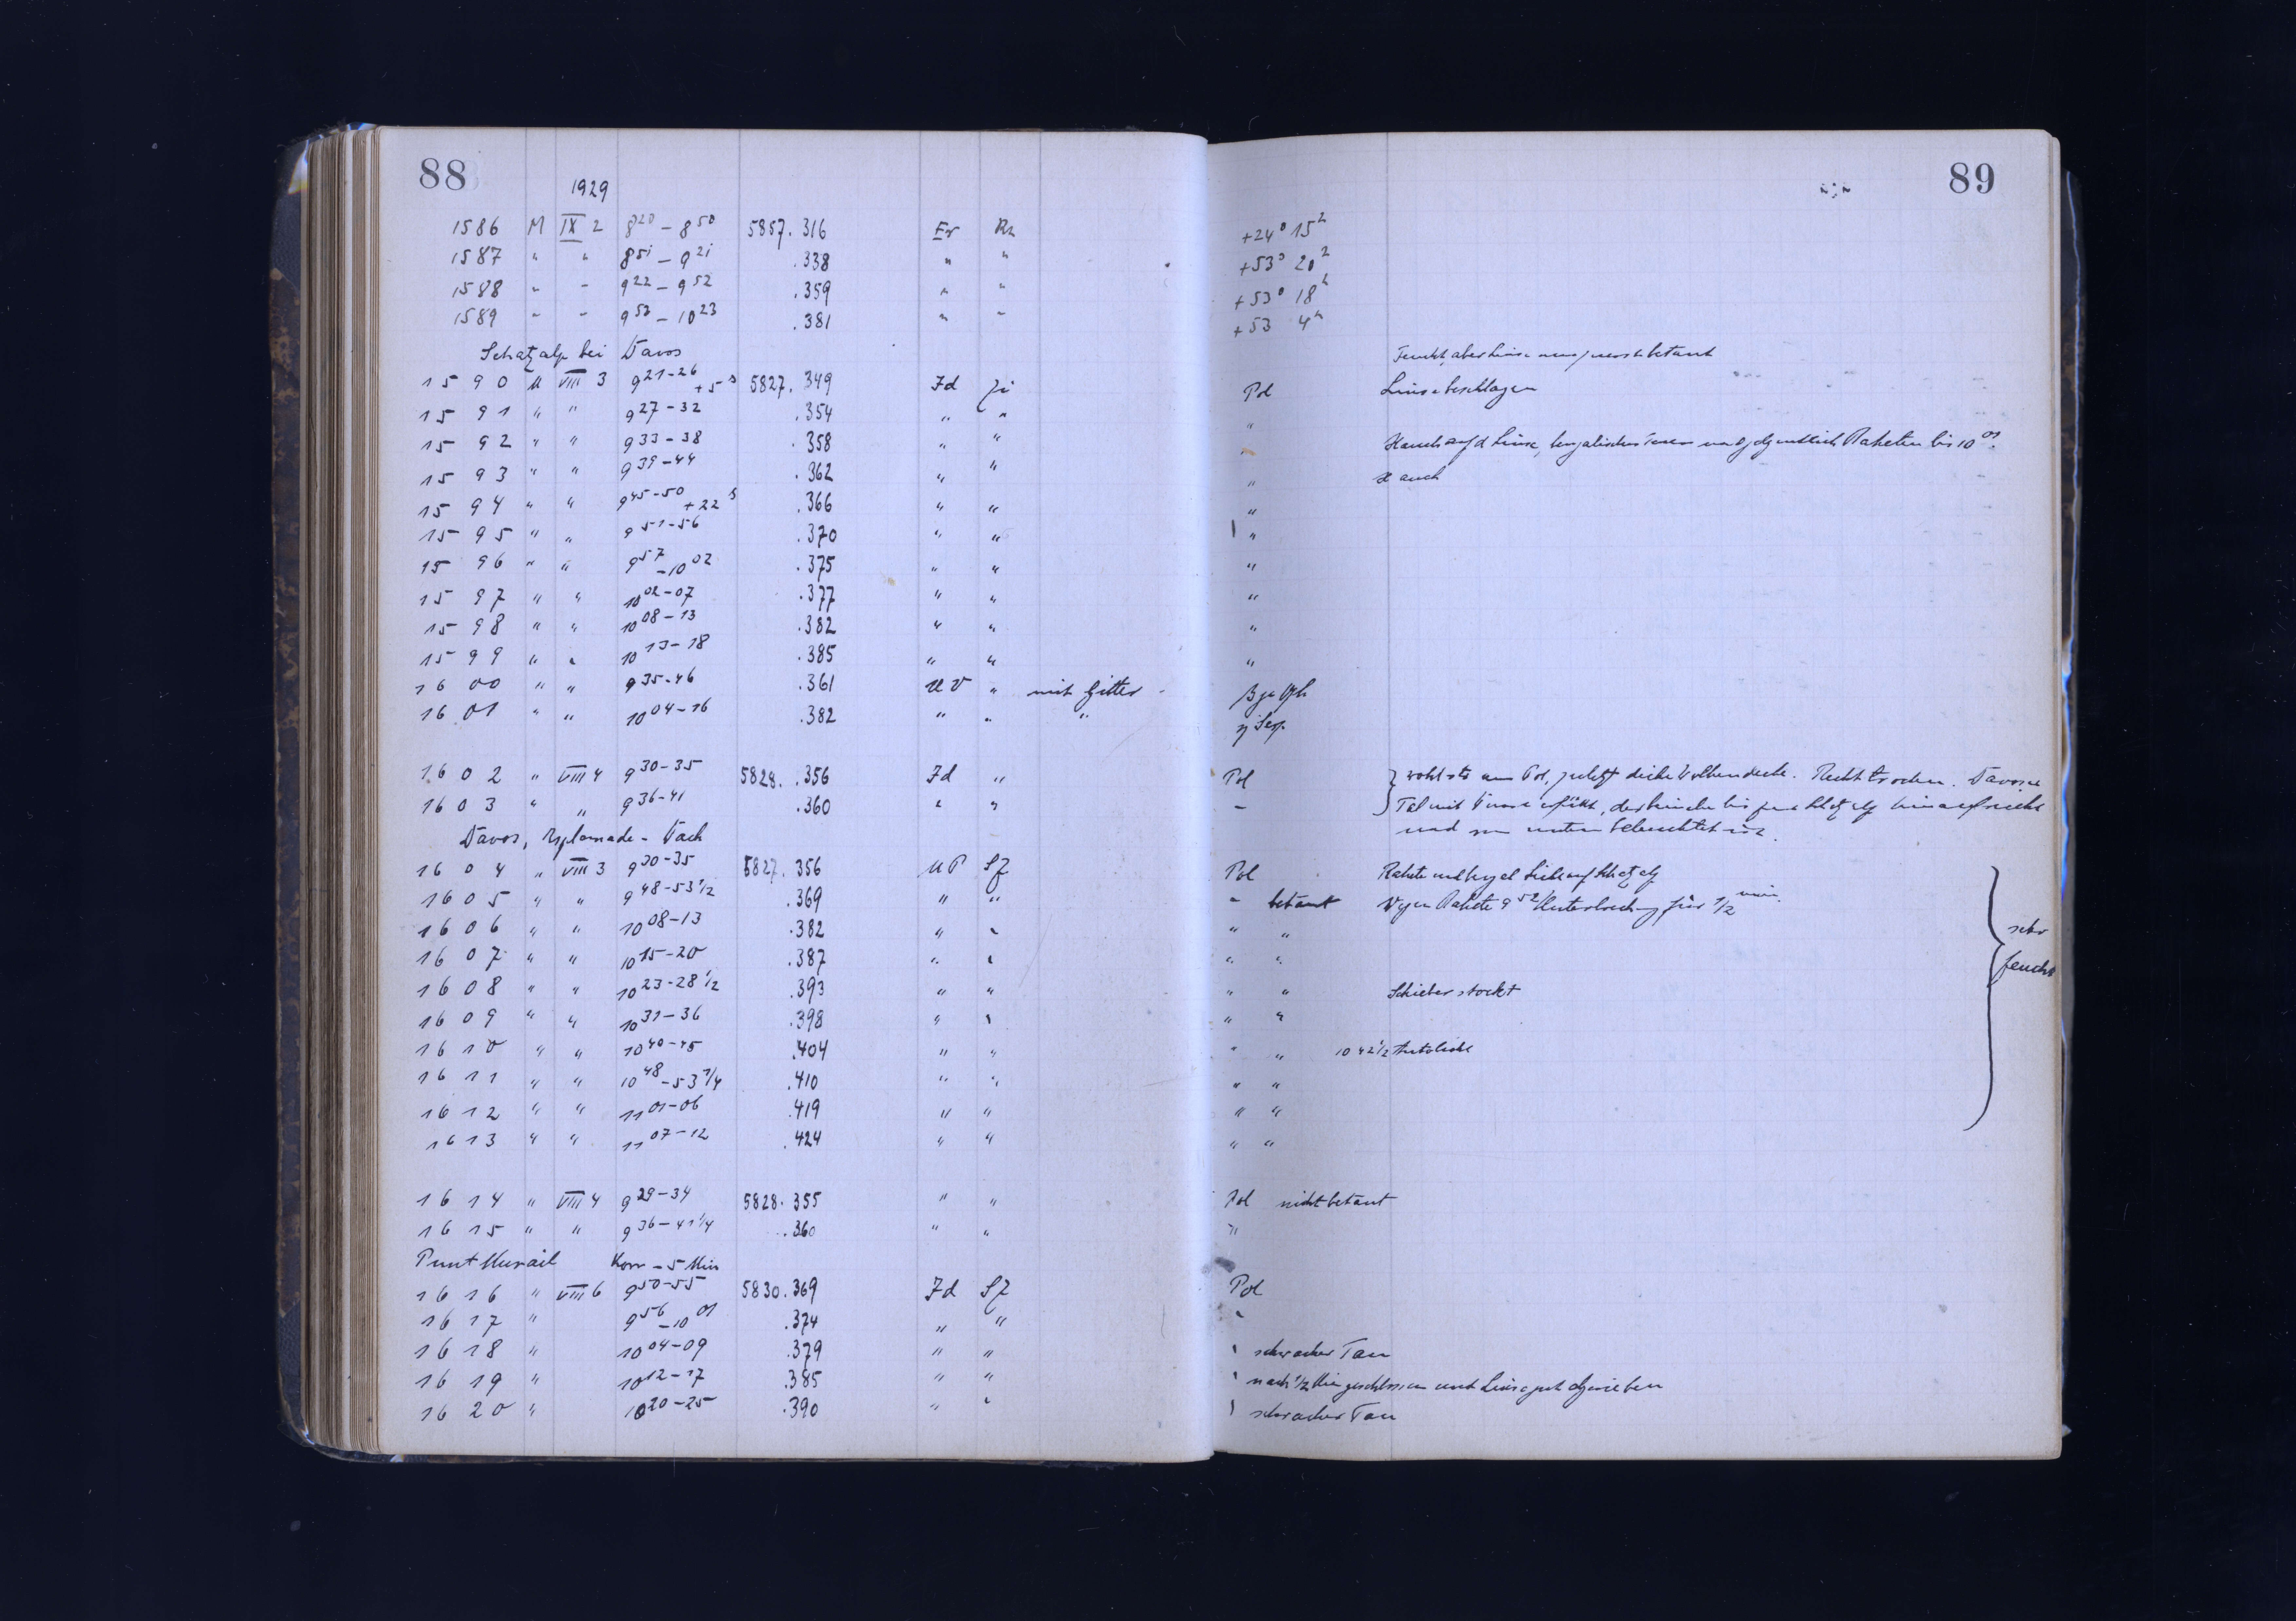 88
1929
1586 M IX 2 8 20 – 8 50 5857. 316 Er Rh +24° 15 h
1587 " " 8 51 – 9 21 .338 " " +53° 20 h
1588 " " 9 22 – 9 52 .359 " " +53° 18 h
1589 " " 9 53 – 10 23 .381 " " +53 4 h
Schatzalp bei Davos
Feucht, aber Linse betaut
1590 M VIII 3 9 21-26 +5 s 5827. 349 Jd Pol Linse beschlagen
1591 " " 9 27-32 .354 " " "
1592 " " 9 33-38 .358 " " " Hauch auf d Linse, bengalisches Raketen bis 10 01.
1593 " " 9 39-44 .362 " " " Hauch
1594 " " 9 45-50 +22 s .366 " " "
1595 " " 9 51-56 .370 " " "
1596 " " 9 57 -10 02 .375 " " "
1597 " " 10 02-07 .377 " " "
1598 " " 10 08-13 .382 " " "
1599 " " 10 13-18 .385 " " "
1600 " " 9 35-46 .361 UV " mit Gitter
1601 " " 10 04-16 .382 " " "
1602 " VIII 4 9 30-35 5828. .356 Jd " Pol } wohl am Pol, zuletzt dicke Wolkendecke. Recht trocken. Davoser
1603 " " 9 36-41 .360 " " – Tal mit Dunst erfüllt, der bis zur Schatzalp hinaufreicht
und von unten beleuchtet ist.
Davos, Esplanade - Dach
1604 " VIII 3 9 30-35 5827. 356 UP Sf Pol Rakete und Kegel Licht auf Schatzalp
1605 " " 9 48-53 1/2 .369 " " " betaut Wegen Rakete 9 52 Unterbrechung für 1/2 min.
1606 " " 10 08-13 .382 " " " " sehr
1607 " " 10 15-20 .387 " " " " feucht
1608 " " 10 23-28 1/2 .393 " " " " Schieber stockt
1609 " " 10 31-36 .398 " " " "
1610 " " 10 40-45 .404 " " " " 10 42 1/2 Autolicht
1611 " " 10 48 -53 1/4 .410 " " " "
1612 " " 11 01-06 .419 " " " "
1613 " " 11 07-12 .424 " " " "
1614 " VIII 4 9 29-34 5828. 355 " " Pol nicht betaut
1615 " " 9 36-41 1/4 .360 " " "
Punt Muraigl Korr – 5 Min
1616 " VIII 6 9 50-55 5830. 369 Jd Sf Pol
1617 " 9 56 -10 01 .374 " " "
1618 " 10 04-09 .379 " " " schwacher Tau
1619 " 10 12-17 .385 " " " nach 1/2 Min geschlossen und Linse gut abgerieben
1620 " 10 20-25 .390 " " " schwacher Tau
89